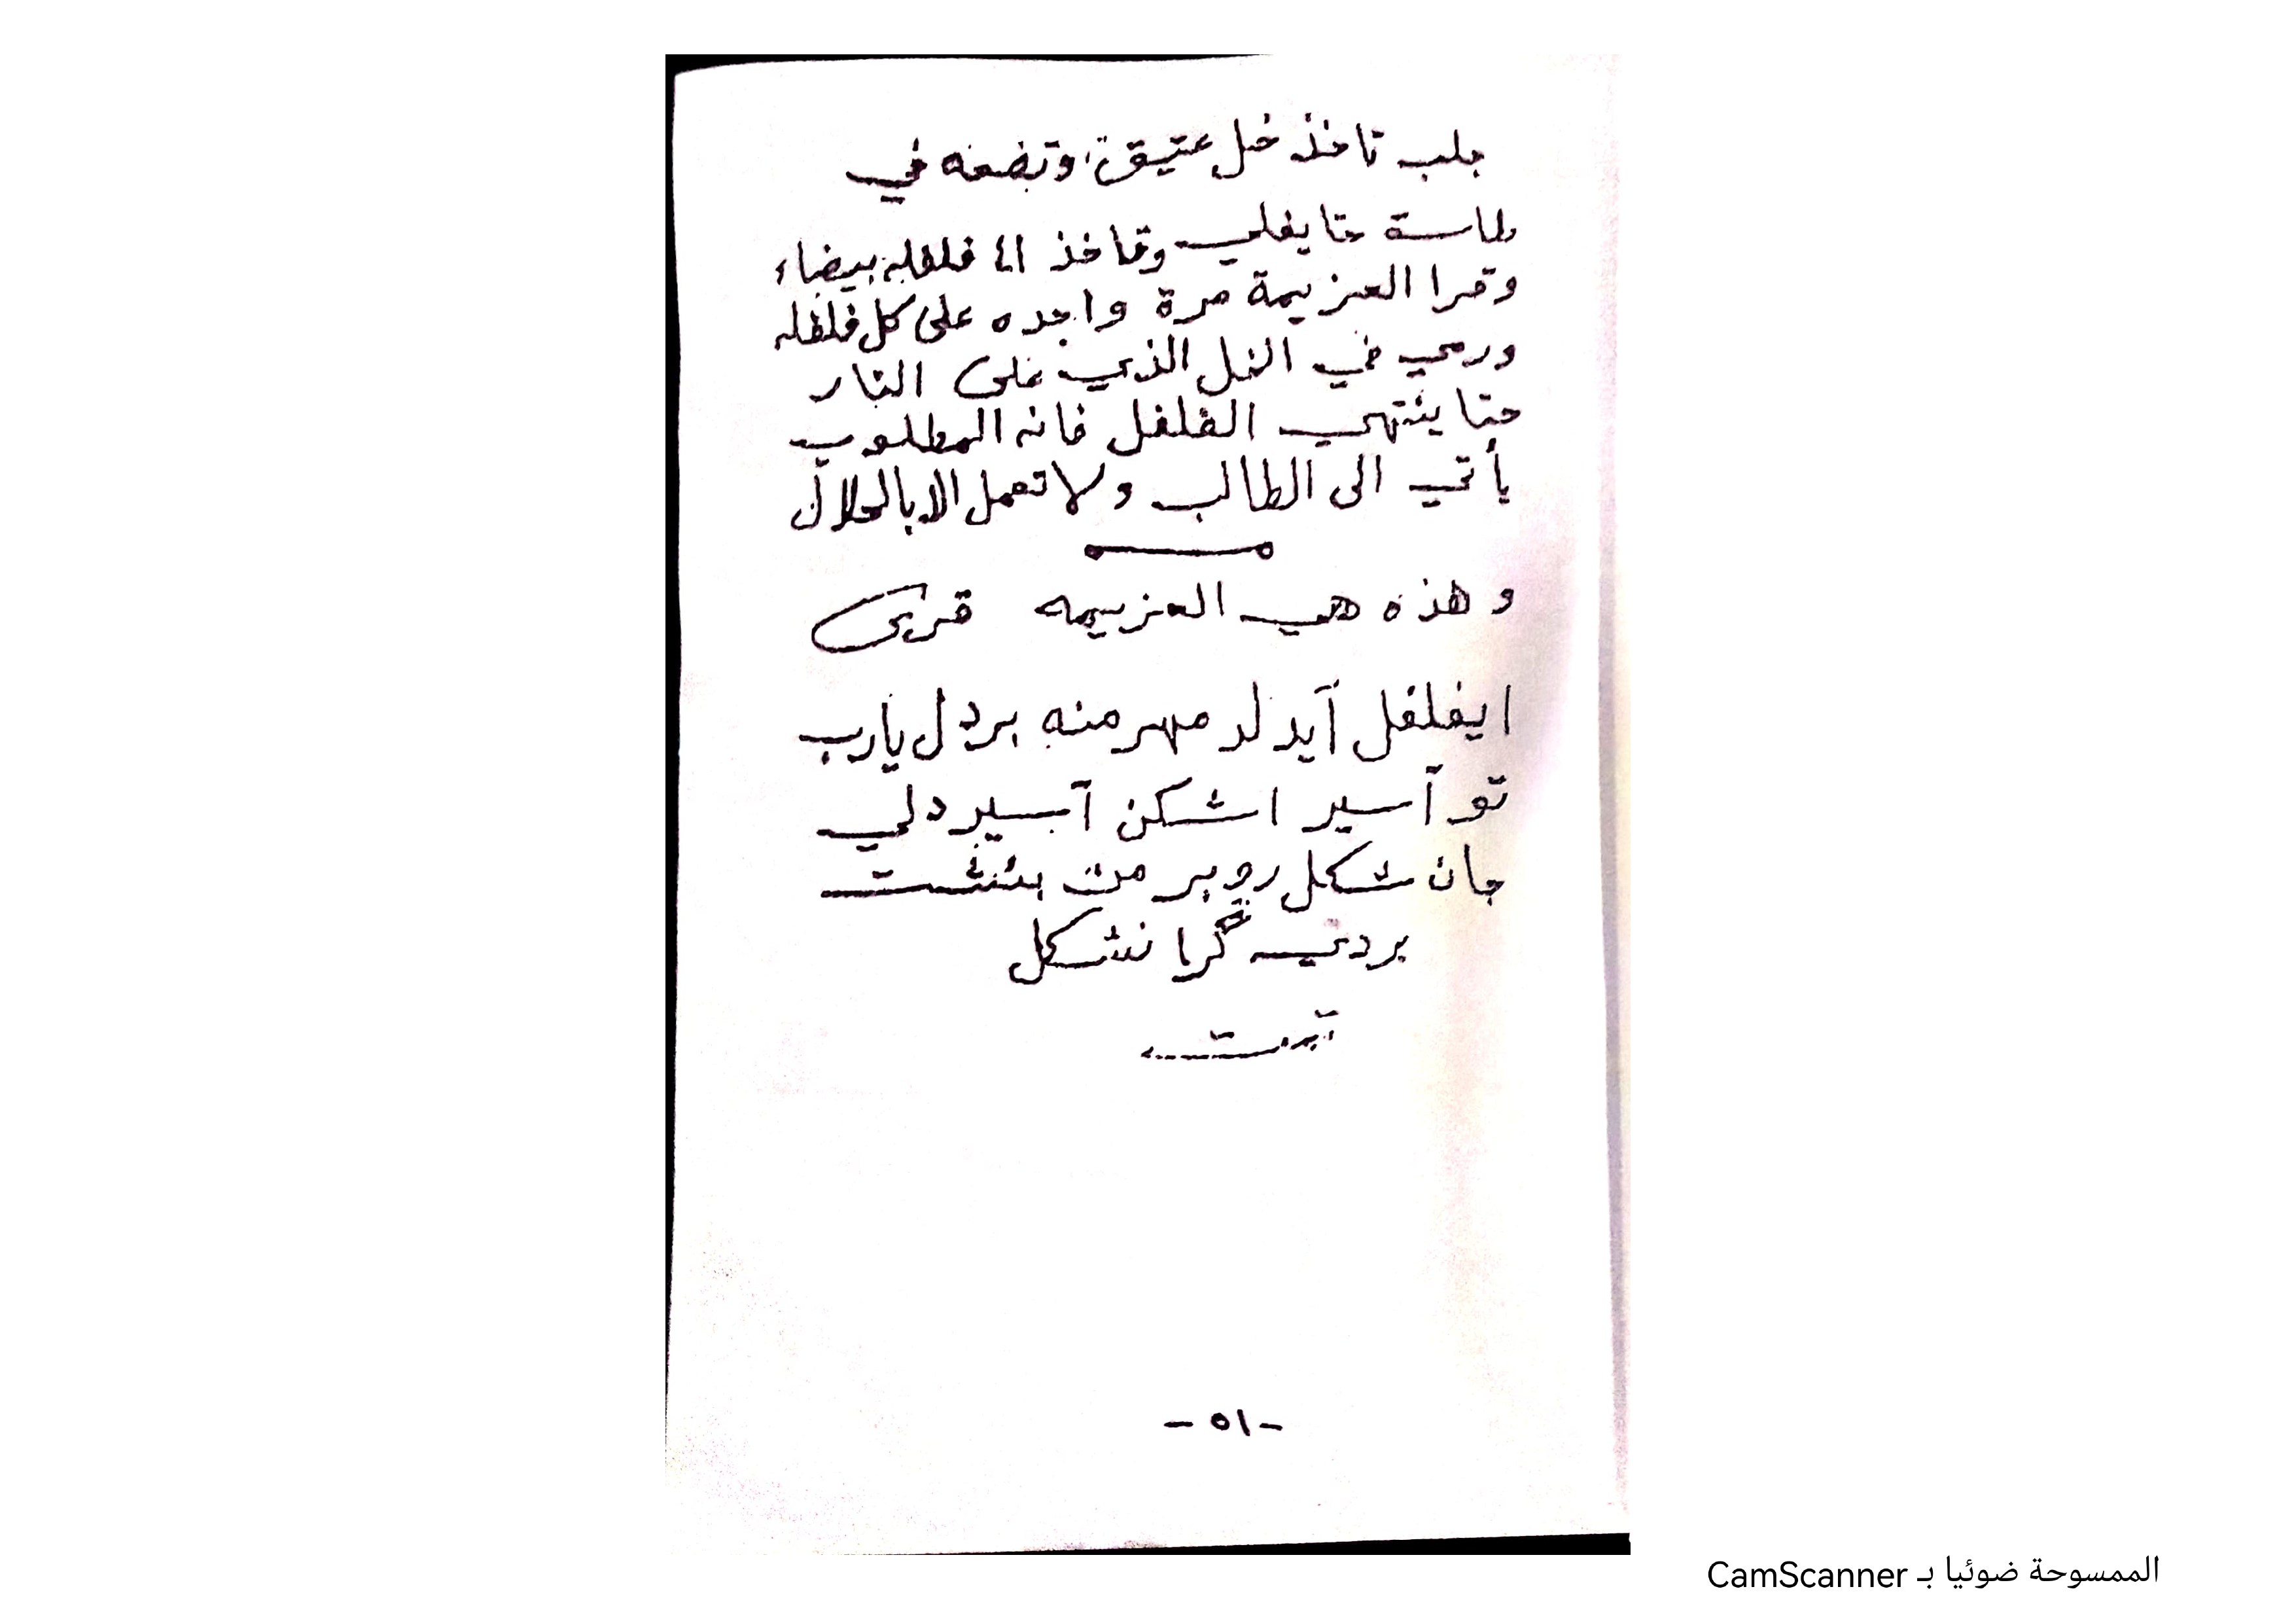 جلب تاخذ خل عتيق وتضعه في
طاسة حتا يغلي وتاخذ ٤١ فلفله بيضاء
وقرا العزيمة مرة واحده على كل فلفله
ورمي في الخل الذي على النار
حتا ينتهي الفلفل فانه المطلوب
يأتي الى الطالب ولا تعمل الا بالحلال
وهذه هي العزيمه
ايفلفل آيدلد مهر منه بردل يارب
تو آسير اشكن آسير دلي
جان شكل رو بر من
بردي نشكل
تمت
- ٥١ -
الممسوحة ضوئيا بـ CamScanner